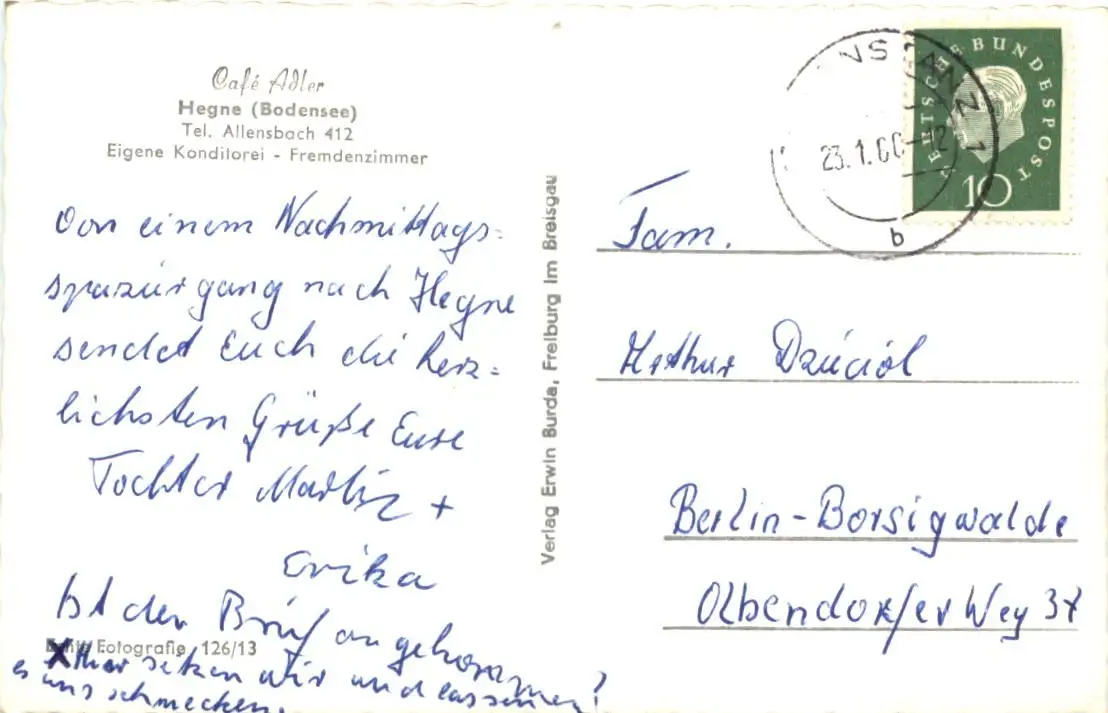 Café Adler
Hegne (Bodensee)
Tel. Allensbach 412
Eigene Konditorei - Fremdenzimmer
Von einem Nachmittags-
spaziergang nach Hegne
sendet Euch die herz-
lichsten Grüße Eure
Tochter Marlis +
Erika
Ist der Brief angekommen?
Echte Fotografie 126/13
X hier sitzen wir und lassen
es uns schmecken.
Verlag Erwin Burda, Freiburg im Breisgau
NSTANZ 1
23.1.60-12
b
DEUTSCHE BUNDESPOST
10
Fam.
Arthur
Berlin-Borsigwalde
Olbendorfer Weg 37